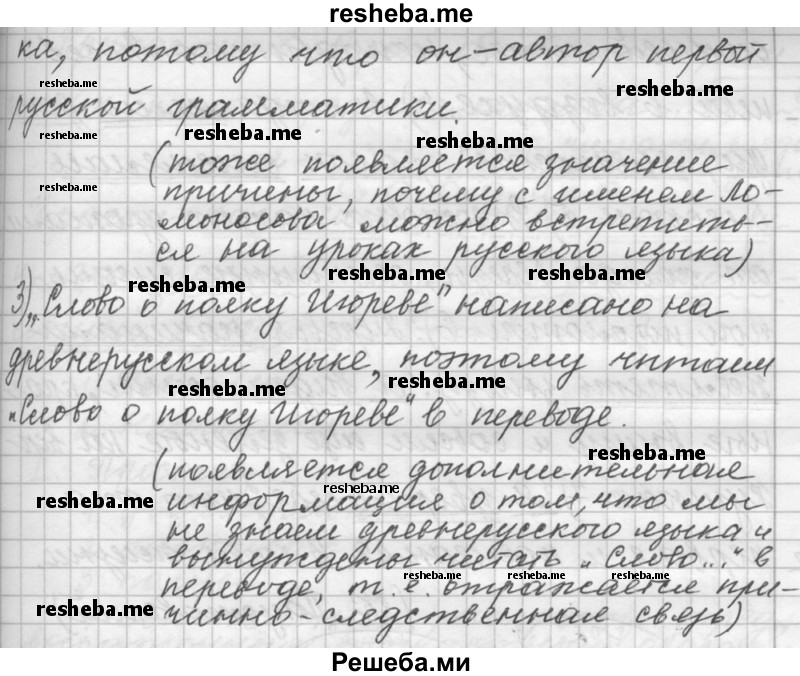 resheba.me
ка, потому что он – автор первой
resheba.me resheba.me
русской грамматики.
resheba.me resheba.me resheba.me
(тоже появляется значение
resheba.me причины, почему с именем Ло-
моносова можно встретить-
ся на уроках русского языка)
resheba.me resheba.me resheba.me
3) „Слово о полку Игореве" написано на
древнерусском языке, поэтому читаем
resheba.me resheba.me
„Слово о полку Игореве" в переводе.
resheba.me
(появляется дополнительная
resheba.me resheba.me
информация о том, что мы
не знаем древнерусского языка и
вынуждены читать „Слово..." в
resheba.me resheba.me resheba.me
переводе, т.е. отражается при-
resheba.me чинно-следственная связь)
Решеба.ми